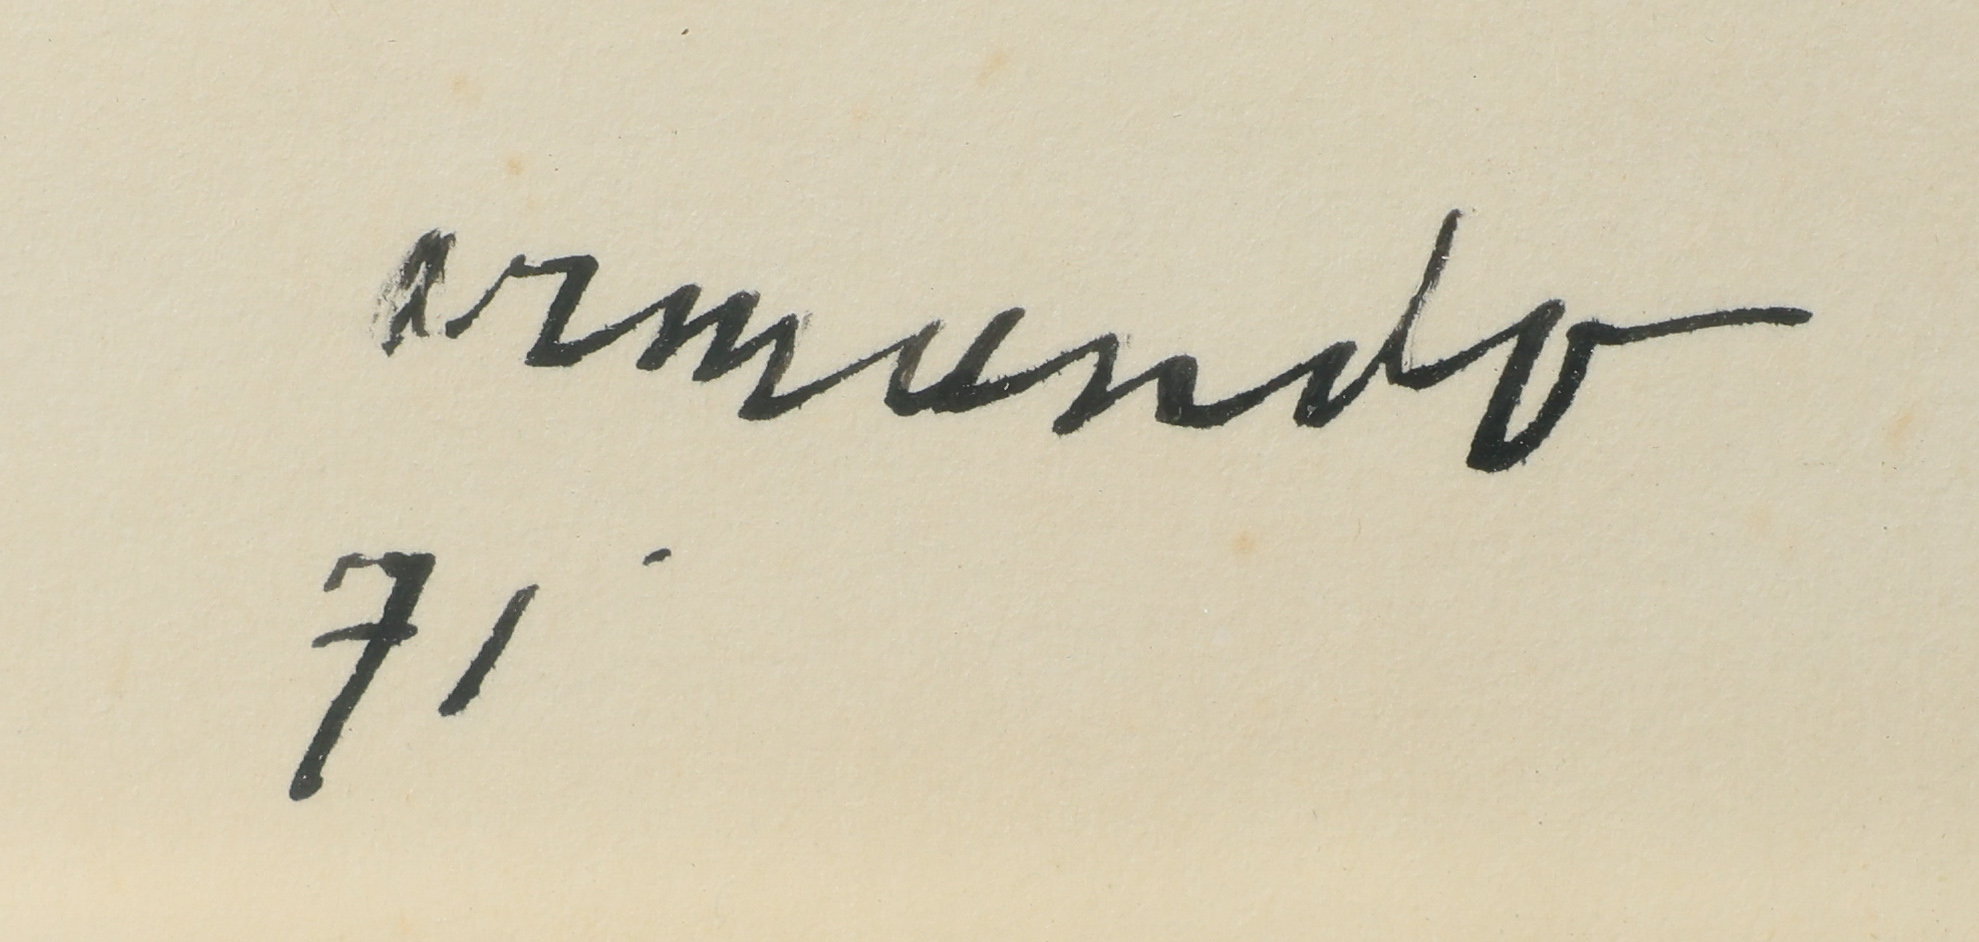 armando
71